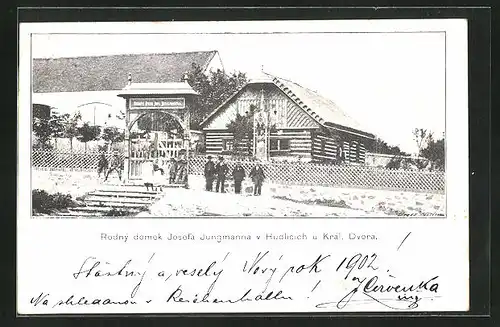 Rodný domek Josefa Jungmanna v Hudlicích u Král. Dvora.
Šťastný a veselý Nový rok 1902!
Na shledanou v Reichenhallu! J Červenka